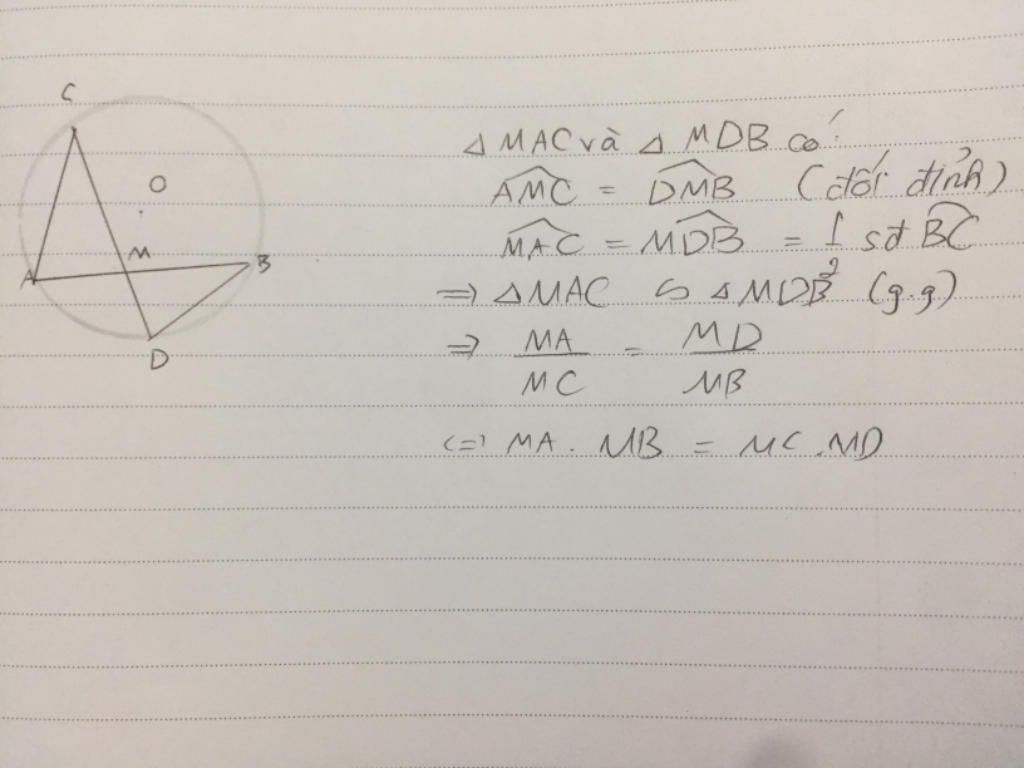 C
O
M
A
B
D
△ MAC và △ MDB có:
\widehat{AMC} = \widehat{DMB} (đối đỉnh)
\widehat{MAC} = \widehat{MDB} = \frac{1}{2} sđ \widehat{BC}
⇒ △MAC ∽ △MDB (g.g)
⇒ \frac{MA}{MC} = \frac{MD}{MB}
<=> MA . MB = MC . MD